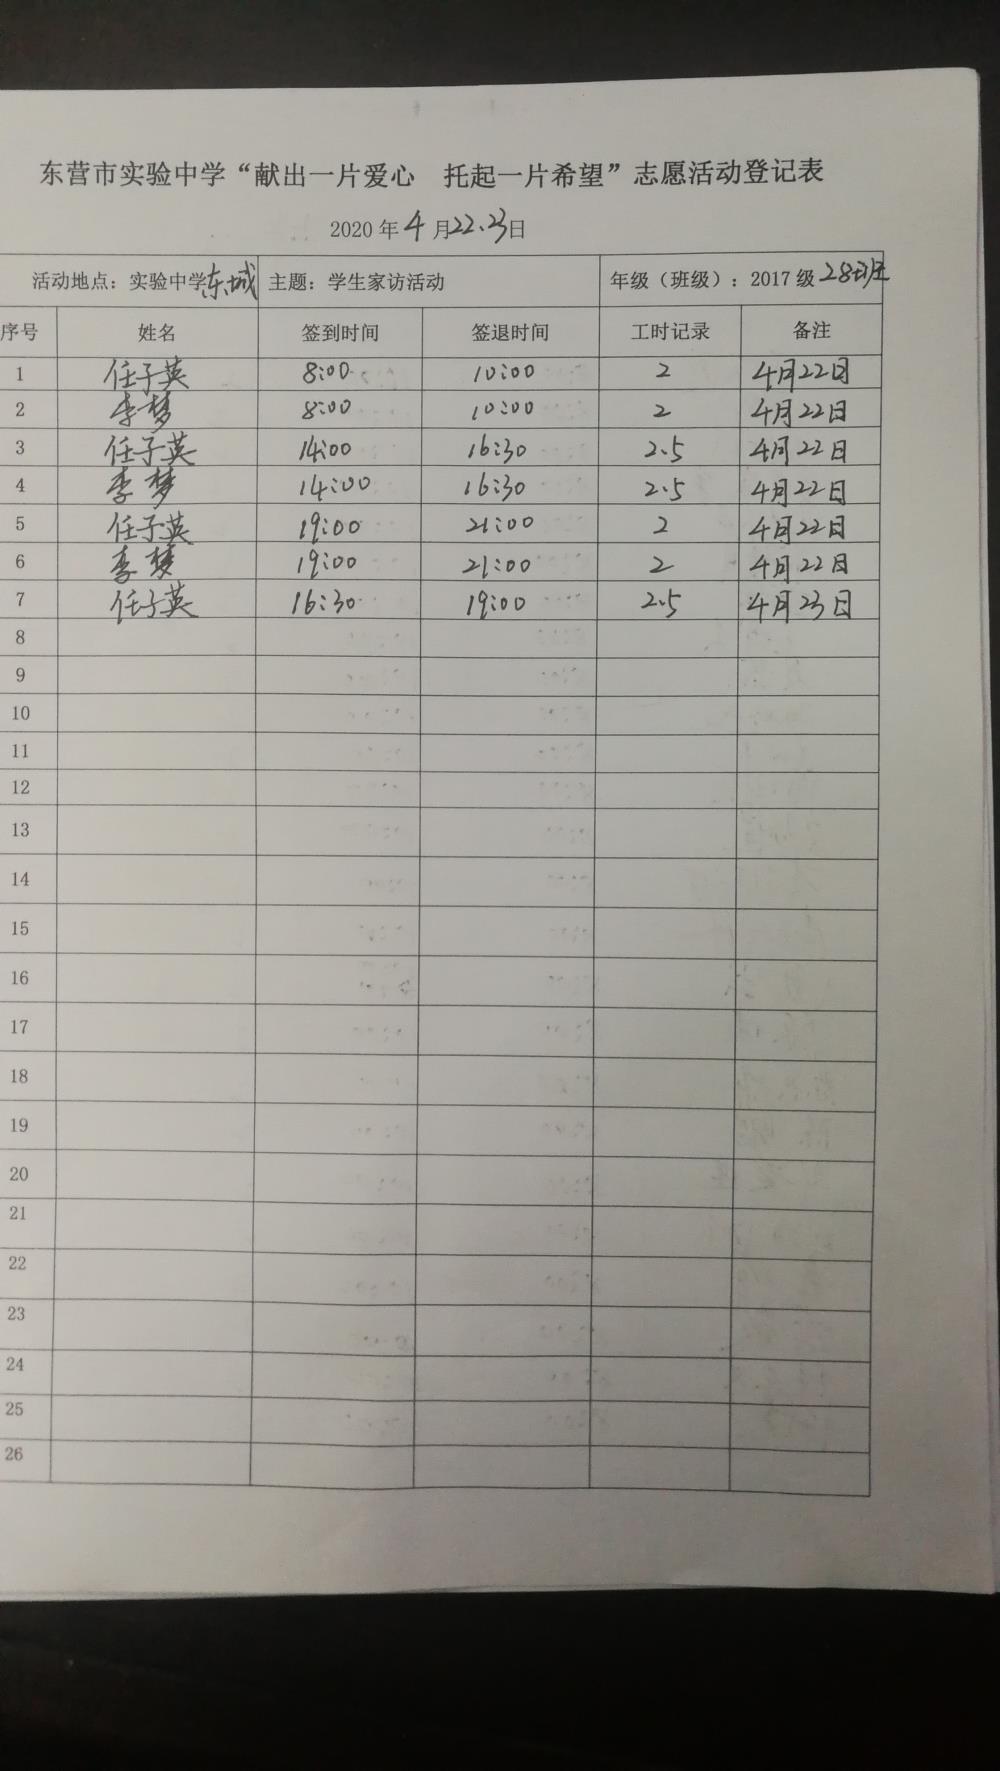 东营市实验中学“献出一片爱心 托起一片希望”志愿活动登记表
2020年4月22.23日
活动地点：实验中学东城 主题：学生家访活动 年级（班级）：2017级28班
序号 姓名 签到时间 签退时间 工时记录 备注
1 任子英 8:00 10:00 2 4月22日
2 李梦 8:00 10:00 2 4月22日
3 任子英 14:00 16:30 2.5 4月22日
4 李梦 14:00 16:30 2.5 4月22日
5 任子英 19:00 21:00 2 4月22日
6 李梦 19:00 21:00 2 4月22日
7 任子英 16:30 19:00 2.5 4月23日
8
9
10
11
12
13
14
15
16
17
18
19
20
21
22
23
24
25
26